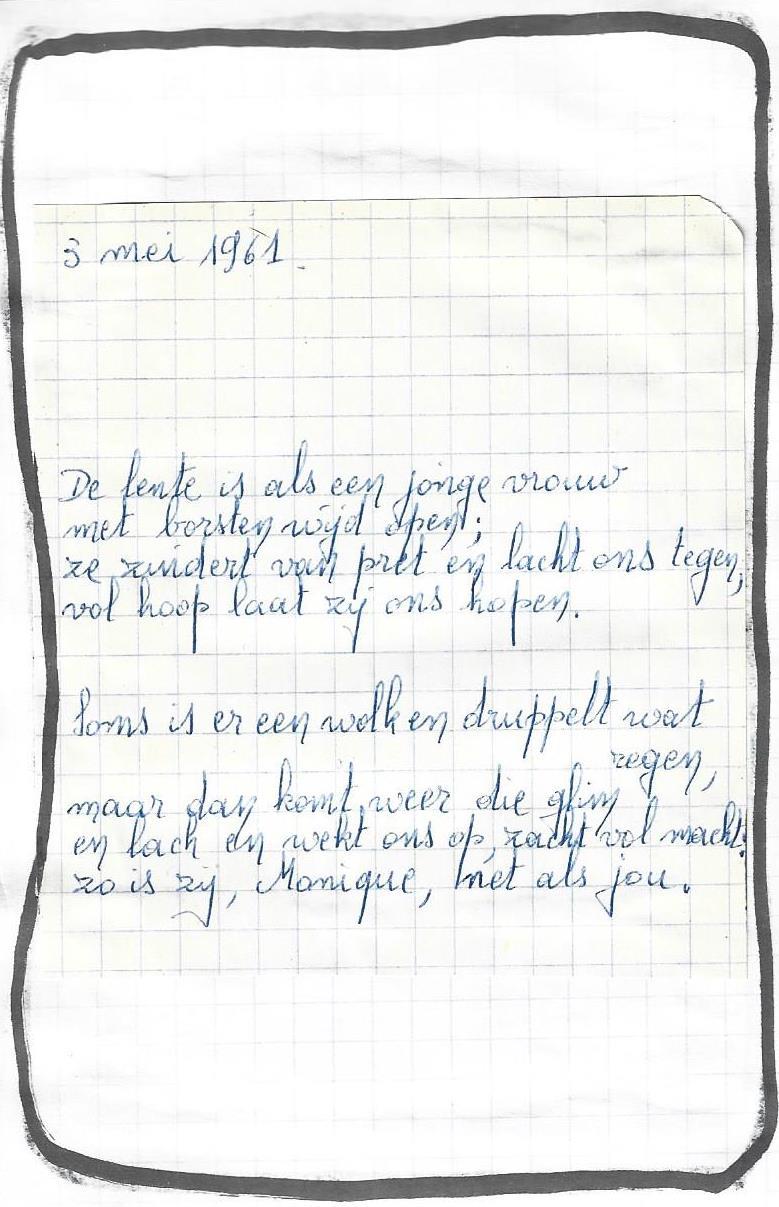 3 mei 1961.
De lente is als een jonge vrouw
met borsten wijd open;
ze zindert van pret en lacht ons tegen,
vol hoop laat zij ons hopen.
Soms is er een wolk en druppelt wat
regen,
maar dan komt weer die glim
en lach en wekt ons op, zacht vol macht:
zo is zij, Monique, net als jou.